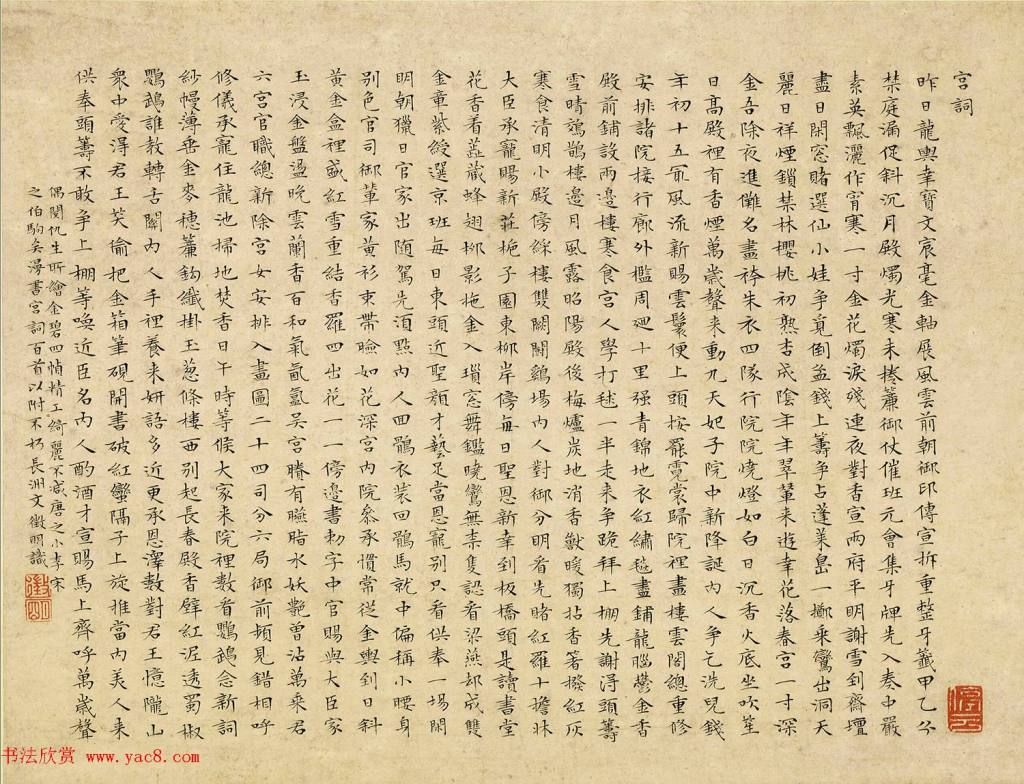 宮詞
昨日龍輿幸寶文宸毫金軸展風雲前朝御印傳宣拆重整牙籤甲乙分
禁庭漏促斜沉月殿燭光寒未捲簾御仗催班元會集牙牌先入奏中嚴
素英飄灑作宵寒一寸金花燭淚殘連夜對香宣兩府平明謝雪到齋壇
盡日閑窓賭選仙小娃爭覓倒盆錢上籌爭占蓬萊島一擲乘鸞出洞天
麗日祥煙鎖禁林櫻桃初熟杏成陰年年翠輦來遊幸花落春宮一寸深
金吾除夜進儺名畫袴朱衣四隊行院院燒燈如白日沉香火底坐吹笙
日高殿裡有香煙萬歲聲來動九天妃子院中新降誕內人爭乞洗兒錢
年初十五最風流新賜雲鬟便上頭按罷霓裳歸院裡畫樓雲閣總重修
安排諸院接行廊外檻周廻十里强青錦地衣紅繡毯盡鋪龍腦鬱金香
殿前鋪設兩邊樓寒食宮人學打毬一半走來爭跪拜上棚先謝得頭籌
雪晴鳷鵲樓邊月風露昭陽殿後梅爐炭地消香獸暖獨拈香箸撥紅灰
寒食清明小殿傍綵樓雙闕鬭鷄場內人對御分明看先賭紅羅十擔牀
大臣承寵賜新莊梔子園東柳岸傍每日聖恩新幸到板橋頭是讀書堂
花香看蕋藏蜂翅柳影拖金入瑣窓舞鑑曉鸞無柰隻認看梁燕却成雙
金章紫綬選京班每日東頭近聖顏才藝足當恩寵別只看供奉一場閑
明朝獵日官家出随駕先須點內人回鶻衣裝回鶻馬就中偏稱小腰身
別色官司御輦家黃衫束帶臉如花深宮內院叅承慣常從金輿到日斜
黃金盒裡盛紅雪重結香羅四出花一一傍邊書勅字中官賜與大臣家
玉浸金盤盪晚雲蘭香百和氣氤氳吳宮賸有臙脂水妖艷曾沾萬乘君
六宮官職總新除宮女安排入畫圖二十四司分六局御前頻見錯相呼
修儀承寵住龍池掃地焚香日午時等候大家來院裡教看鸚鵡念新詞
紗幔薄垂金麥穗簾鈎纖掛玉葱條樓西別起長春殿香壁紅泥透蜀椒
鸚鵡誰教轉舌關內人手裡養來姸語多近更承恩澤數對君王憶隴山
衆中愛得君王笑偷把金箱筆硯開書破紅蠻隔子上旋推當內美人來
供奉頭籌不敢爭上棚等喚近臣名內人酌酒才宣賜馬上齊呼萬歲聲
偶閱仇生所繪金碧四幀精工綺麗不減唐之小李宋
之伯駒矣漫書宮詞百首以附不朽長洲文徵明識
徵明
书法欣赏 www.yac8.com